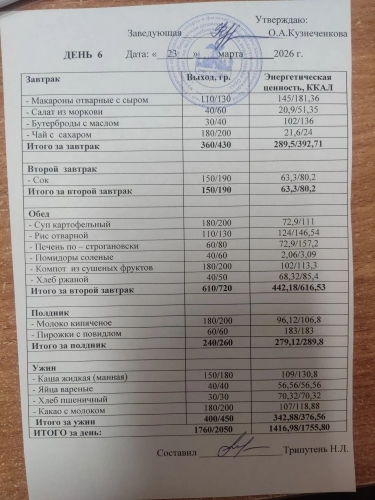 Утверждаю:
Заведующая О.А.Кузнеченкова
ДЕНЬ 6 Дата: « 23 » марта 2026 г.
Завтрак Выход, гр. Энергетическая ценность, ККАЛ
- Макароны отварные с сыром 110/130 145/181,36
- Салат из моркови 40/60 20,9/51,35
- Бутерброды с маслом 30/40 102/136
- Чай с сахаром 180/200 21,6/24
Итого за завтрак 360/430 289,5/392,71
Второй завтрак
- Сок 150/190 63,3/80,2
Итого за второй завтрак 150/190 63,3/80,2
Обед
- Суп картофельный 180/200 72,9/111
- Рис отварной 110/130 124/146,54
- Печень по – строгановски 60/80 72,9/157,2
- Помидоры соленые 40/60 2,06/3,09
- Компот из сушеных фруктов 180/200 102/113,3
- Хлеб ржаной 40/50 68,32/85,4
Итого за второй завтрак 610/720 442,18/616,53
Полдник
- Молоко кипяченое 180/200 96,12/106,8
- Пирожки с повидлом 60/60 183/183
Итого за полдник 240/260 279,12/289,8
Ужин
- Каша жидкая (манная) 150/180 109/130,8
- Яйца вареные 40/40 56,56/56,56
- Хлеб пшеничный 30/30 70,32/70,32
- Какао с молоком 180/200 107/118,88
Итого за ужин 400/450 342,88/376,56
ИТОГО за день: 1760/2050 1416,98/1755,80
Составил Трипутень Н.Л.